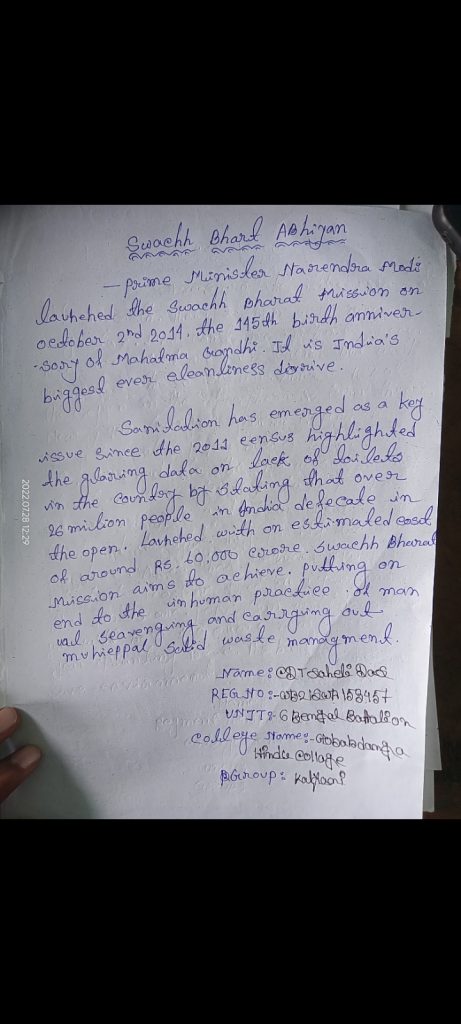 Swachh Bhart Abhiyan
- Prime Minister Narendra Modi
lauhehed the Swachh Bharat Mission on
oectober 2nd 2014. the 145th birth anniver-
-sory of Mahatma Gandhi. It is India's
biggest ever cleanliness derive.
Sanitation has emerged as a key
issue since the 2011 census highlighted
the glaring data on lack of toilets
in the country by stating that over
26 milion people in India defecate in
the open. Lauhehed with on estimated cost
of around Rs. 60,000 crore. Swachh Bharat
Mission aims to achieve. putting on
end to the inhuman practice of man
ual seavenging and carrying out
muhicppal solid waste managment.
Name: CDT Saheli Das
REG NO:- WB21SWA158457
UNIT:- 6 Bengal Battalion
College Name:- Gobabdanga
Hindu Collage
Group: Kalyani
2022.07.28 12:29